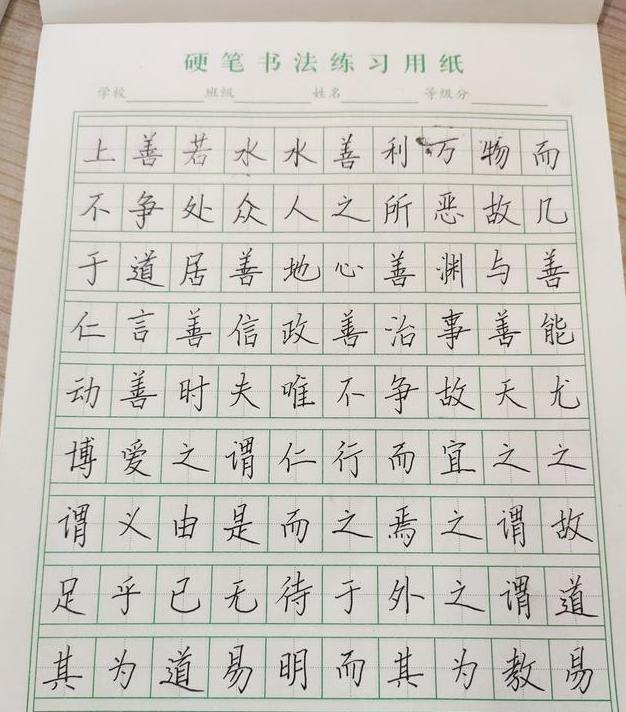 硬笔书法练习用纸
学校 班级 姓名 等级分
上善若水水善利万物而
不争处众人之所恶故几
于道居善地心善渊与善
仁言善信政善治事善能
动善时夫唯不争故天尤
博爱之谓仁行而宜之之
谓义由是而之焉之谓故
足乎已无待于外之谓道
其为道易明而其为教易